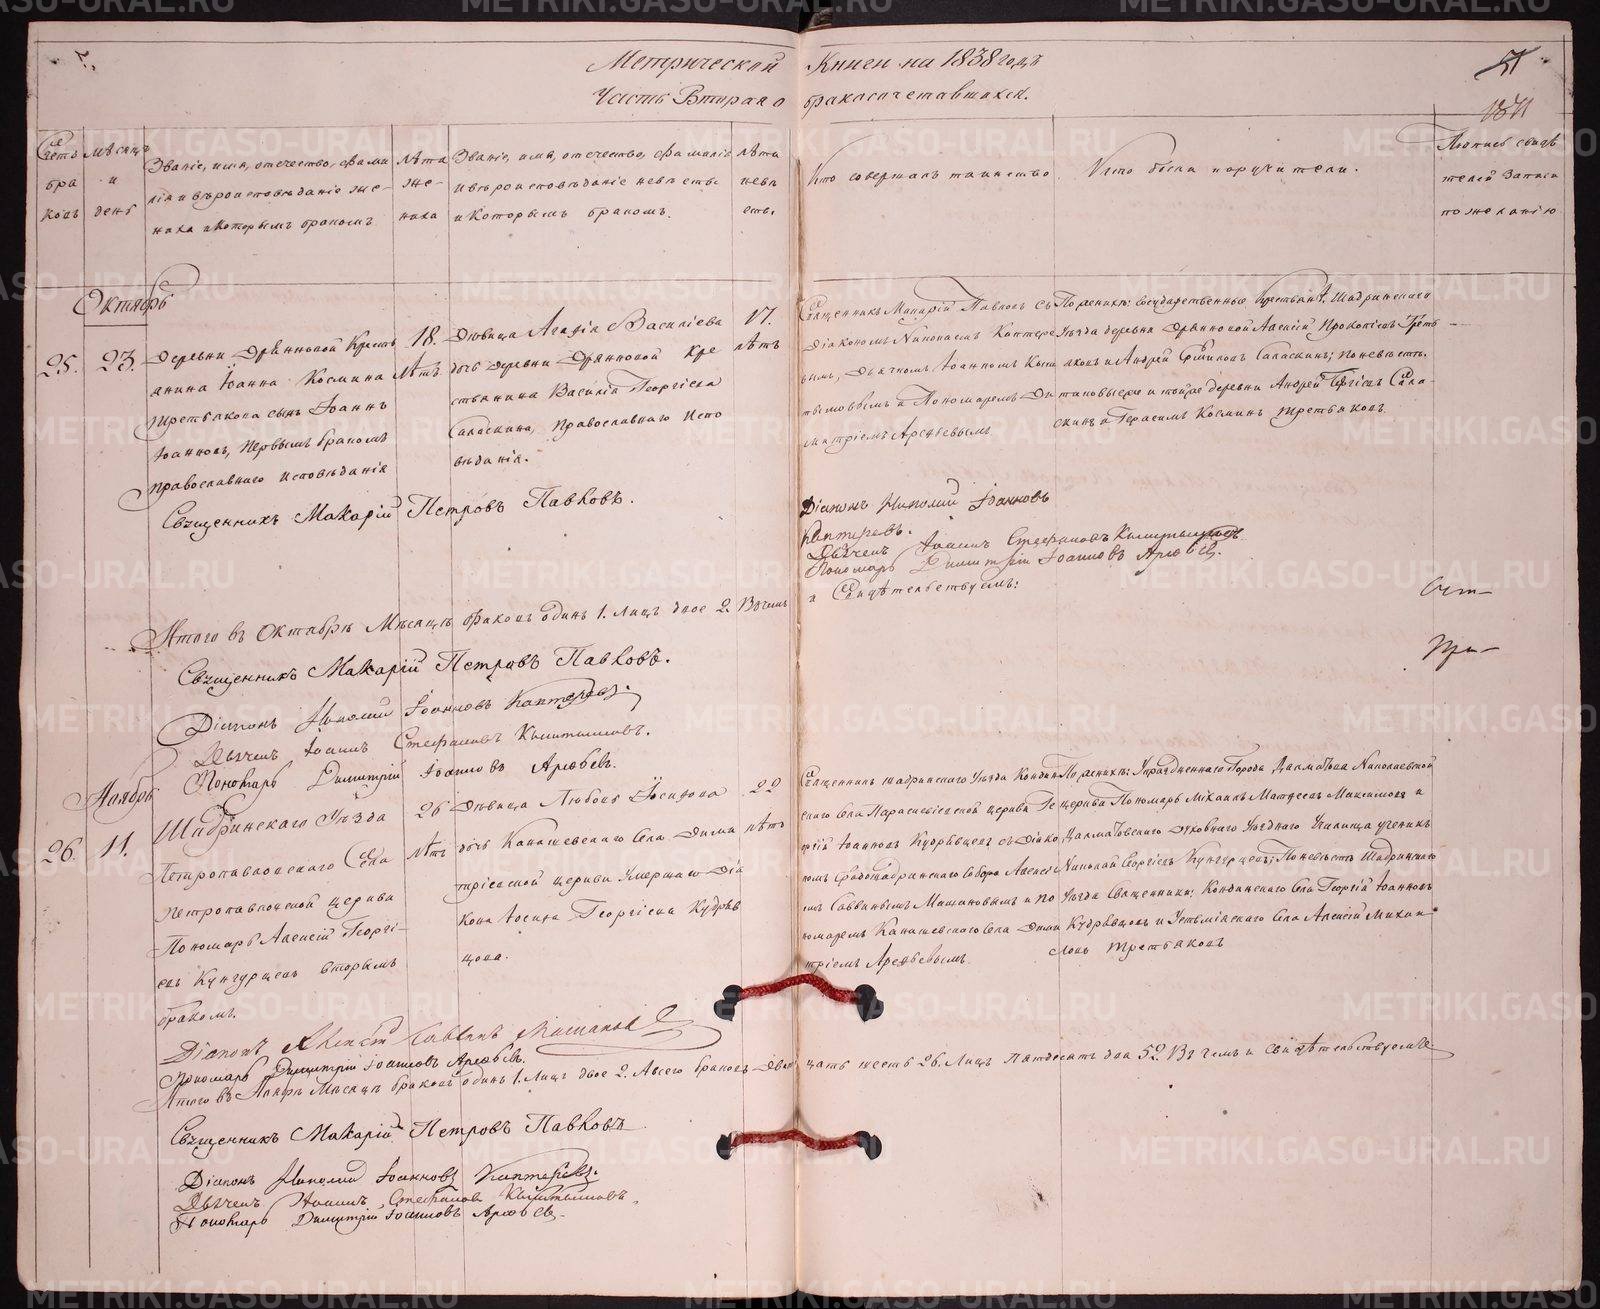 Метрической Книги на 1838 годъ
Часть Втораго бракосочетавшихся.
Счетъ браковъ
Мѣсяцъ и день
Званіе, имя, отечество, фамилія и вѣроисповѣданіе жениха и которымъ бракомъ
Лѣта жениха
Званіе, имя, отечество, фамилія и вѣроисповѣданіе невѣсты и которымъ бракомъ.
лѣта невѣсты.
Кто совершалъ таинство
Кто были поручители.
Подпись свидѣтелей записи по желанію
Октябрь
25. 23.
Деревни Дрянновой Кресть
янина Іоанна Космина
Третьякова сынъ Іоаннъ
Іоанновъ, первымъ бракомъ
православнаго исповѣданія
18.
Лѣтъ
Дѣвица Агафія Василіева
дочь деревни Дрянновой кре
стьянина Василія Георгіева
Саласкина, православнаго испо
вѣданія.
17.
лѣтъ
Священникъ Макарій Павловъ съ
Діакономъ Николаемъ Каптере
вымъ, Дьячкомъ Іоанномъ Кыш
тымовымъ и Пономаремъ Ди
митріемъ Арефьевымъ
По женихѣ: государственные крестьяне Шадринскаго
Уѣзда деревни Дрянновой Алексій Прокопіевъ Треть
яковъ и Андрей Саласкинъ; по невѣстѣ:
тоже деревни Андрей Сала
скинъ и Герасимъ Косминъ Третьяковъ
Священникъ Макарій Петровъ Павловъ.
Діаконъ Николай Іоанновъ
Каптеревъ.
Дьячекъ Іоаннъ Стефановъ Кыштымовъ
Пономарь Димитрій Іоанновъ Арефьевъ.
Итого въ Октябрѣ Мѣсяцѣ браковъ одинъ 1. лицъ двое 2. В чемъ
и Свидѣтельствуемъ:
Священникъ Макарій Петровъ Павловъ.
Діаконъ Николай Іоанновъ Каптеревъ.
Дьячекъ Іоаннъ Стефановъ Кыштымовъ.
Пономарь Димитрій Іоанновъ Арефьевъ.
Ноябрь
26. 11.
Шадринскаго Уѣзда
Петропавловскаго Села
Петропавловской церкви
Пономарь Алексій Георгі-
евъ Кунгурцевъ вторымъ
бракомъ.
26
лѣтъ
Дѣвица Любовь Іосифова
дочь Канашевскаго Села Дими
тріевской церкви умершаго Діа
кона Іосифа Георгіева Кудрявцова.
22
лѣтъ
Священникъ Шадринскаго Уѣзда Кондин
скаго Села Параскевіевской церкви Ге
оргій Іоанновъ Кудрявцевъ съ Діако
номъ Градошадринскаго Собора Алексѣ
емъ Саввинымъ Машановымъ и по
номаремъ Канашевскаго села Дими
тріемъ Арефьевымъ
По женихѣ: Упраздненнаго Города Далматова Николаевской
церкви Пономарь Михаилъ Матфеевъ Максимовъ и
Далматовскаго духовнаго Уѣзднаго Училища ученикъ
Николай Георгіевъ Кунгурцевъ; По невѣстѣ Шадринскаго
Уѣзда Священники: Кондинскаго Села Георгій Іоанновъ
Кудрявцовъ и Устьміяскаго Села Алексій Михаи
ловъ Третьяковъ
Діаконъ Алексѣй Саввинъ Машановъ
Пономарь Димитрій Іоанновъ Арефьевъ.
Итого въ Ноябрѣ Мѣсяцѣ браковъ одинъ 1. лицъ двое 2. А всего браковъ двадцать шесть 26. Лицъ пятдесятъ два 52. В чемъ и свидѣтельствуемъ
Священникъ Макарій Петровъ Павловъ
Діаконъ Николай Іоанновъ Каптеревъ.
Дьячекъ Іоаннъ Стефановъ Кыштымовъ.
Пономарь Димитрій Іоанновъ Арефьевъ.
METRIKI.GASO-URAL.RU